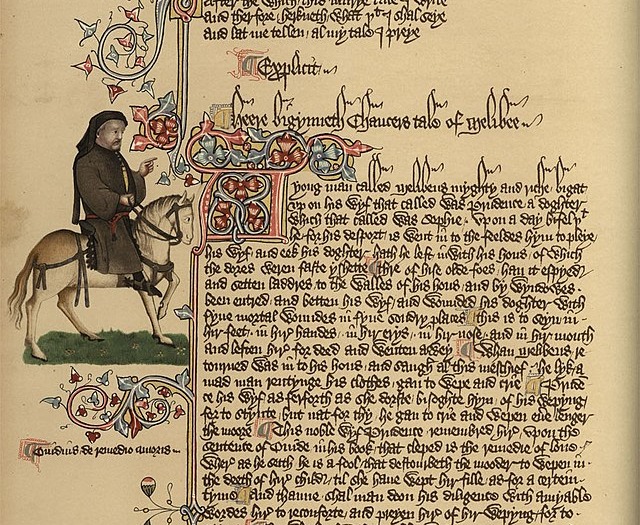 after the which this murye tale I write
and therfore herkneth what þt I shal seye
and lat me tellen al my tale I preye
Explicit
Heere bigynneth Chaucers tale of Melibee
A yong man called Melibeus myghty and riche bigat
up on his wyf that called was Prudence a doghter
which that called was Sophie / Upon a day bifel þt
he for his desport is went in to the feeldes hym to pleye
his wyf and eek his doghter hath he left inwith his hous / of which
the dores weren faste yshette / thre of hise olde foes han it espyed
and setten laddres to the walles of his hous and by wyndowes
been entred / and betten his wyf / and wounded his doghter with
fyue mortal woundes in fyue sondry places / this is to seyn in
hir feet / in hir handes / in hir erys / in hir nose / and in hir mouth
and leften hir for deed and wenten awey / Whan Melibeus re
tourned was in to his hous and saugh al this meschief / he lyk a
mad man rentynge his clothes / gan to wepe and crie / Prude
ce his wyf as ferforth as she dorste bisoghte hym of his wepyng
for to stynte / but nat for thy he gan to crie and wepen euere lenger
the moore / This noble wyf Prudence remembred hir vpon the
sentence of Ouide in his book that cleped is the remedie of loue
wher as he seith / he is a fool that destourbeth the mooder to wepen in
the deeth of hir child / til she haue wept hir fille as for a certein
tyme / and thanne shal man doon his diligence with amyable
wordes hir to reconforte and preyen hir of hir wepyng for to
Ouidius de remedio amoris